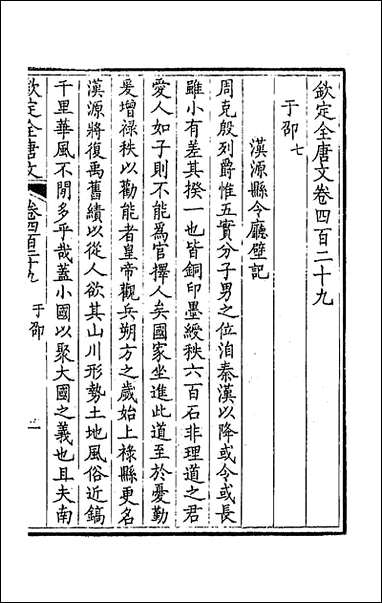 欽定全唐文卷四百二十九
于邵七
漢源縣令廳壁記
周克殷列爵惟五實分子男之位洎秦漢以降或令或長
雖小有差其揆一也皆銅印墨綬秩六百石非理道之君
愛人如子則不能爲官擇人矣國家坐進此道至於憂勤
爰增祿秩以勸能者皇帝觀兵朔方之歲始上祿縣更名
漢源將復禹舊績以從人欲其山川形勢土地風俗近鎬
千里華風不閒多乎哉蓋小國以聚大國之義也且夫南
欽定全唐文 卷四百二十九 于邵 一